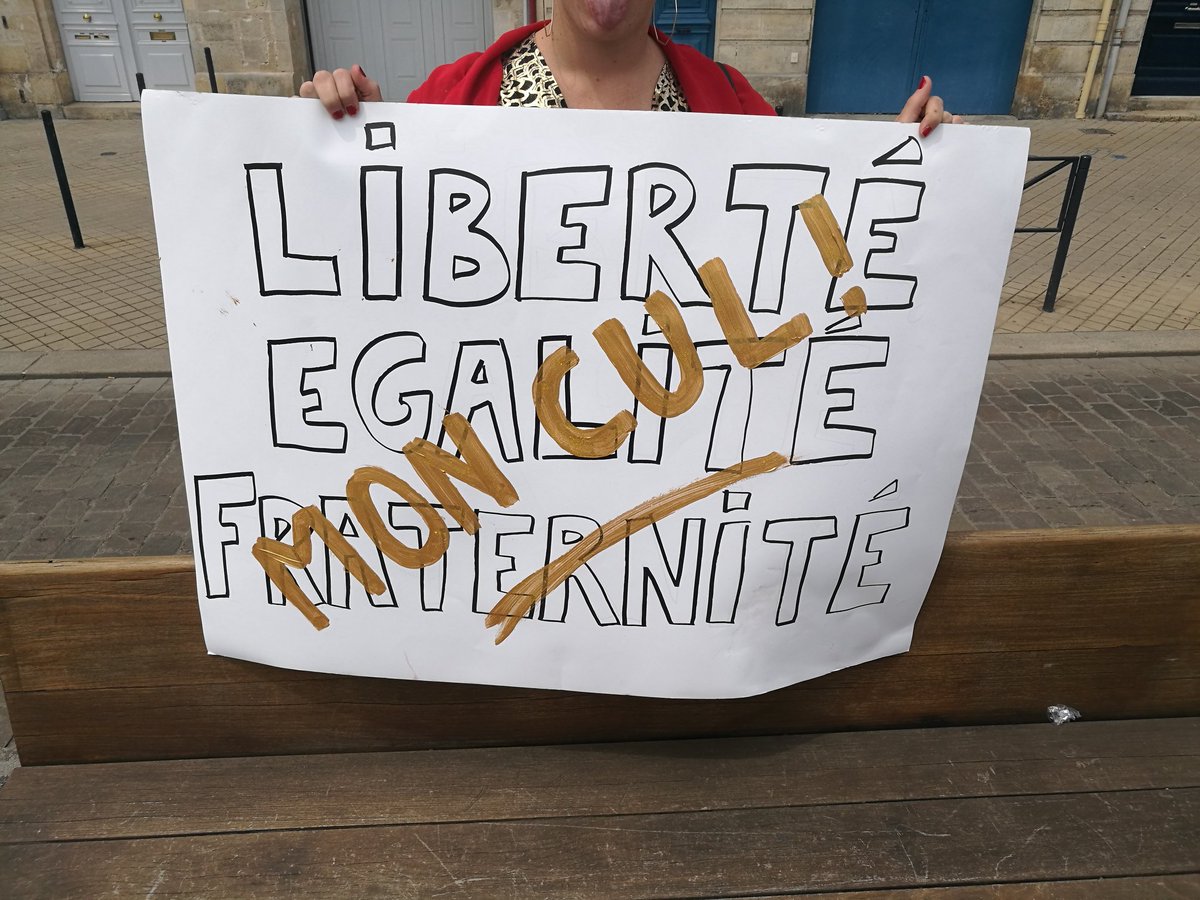 LIBERTÉ
EGALITÉ
FRATERNITÉ
MON CUL!